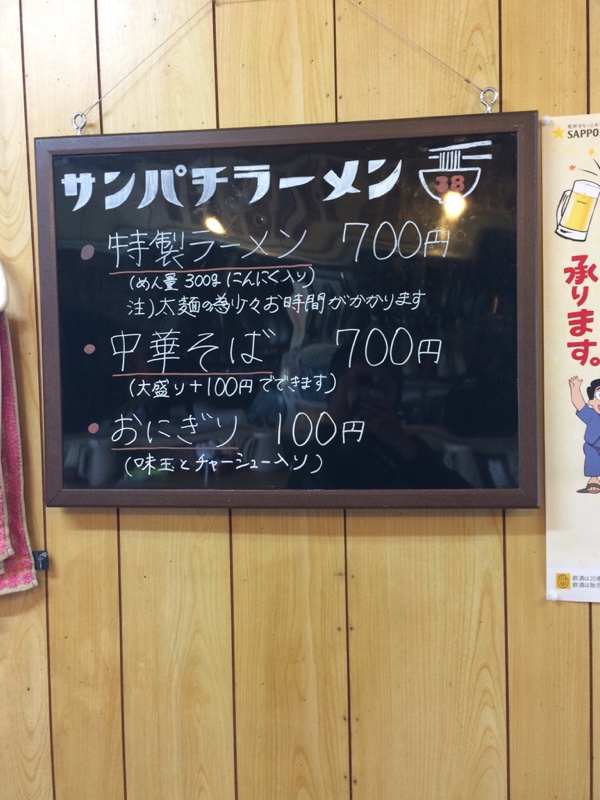 サンパチラーメン 38
特製ラーメン 700円
(めん量 300g にんにく入り)
注)太麺の為少々お時間がかかります
中華そば 700円
(大盛り+100円でできます)
おにぎり 100円
(味玉とチャーシュー入り)
SAPPO
承ります。
飲酒は20歳